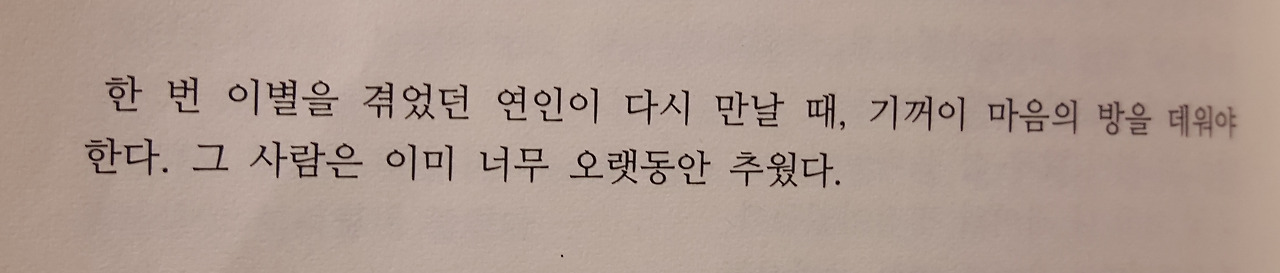 한 번 이별을 겪었던 연인이 다시 만날 때, 기꺼이 마음의 방을 데워야
한다. 그 사람은 이미 너무 오랫동안 추웠다.